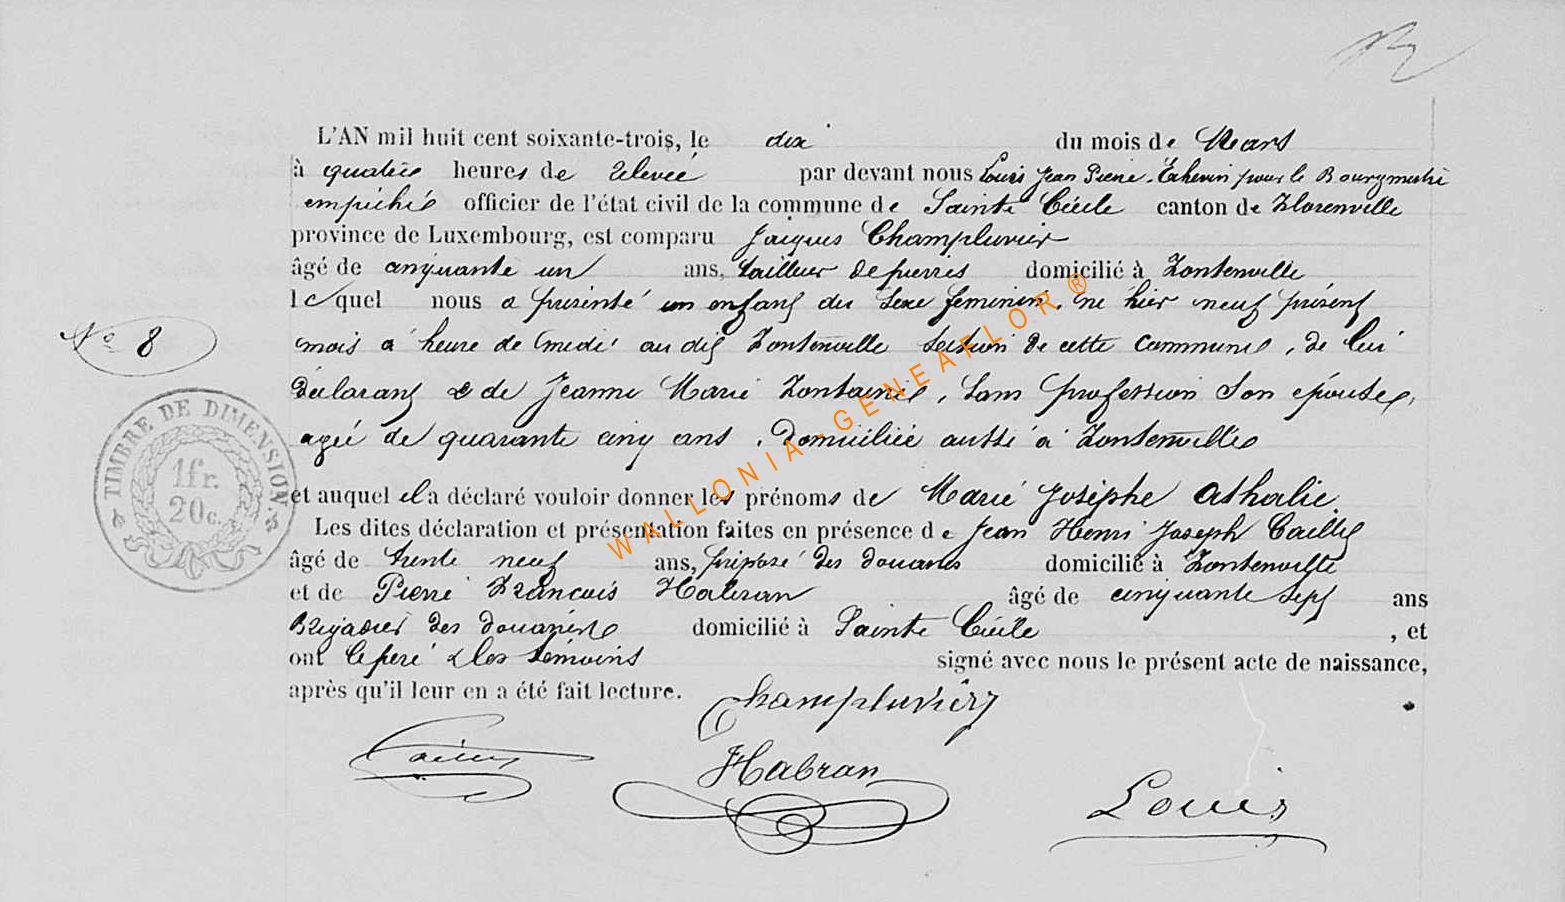 L'AN mil huit cent soixante-trois, le dix du mois de Mars
à quatre heures de relevée par devant nous Louis Jean Pierre Echevin pour le Bourgmestre
empéché officier de l'état civil de la commune de Sainte Cécile canton de Florenville
province de Luxembourg, est comparu Jacques Champluvier
âgé de cinquante un ans, tailleur de pierres domicilié à Fontenville
lequel nous a présenté un enfant du sexe feminin, né hier neuf présent
mois à heure de midi au dit Fontenville section de cette commune, de lui
Nº 8
déclarant & de Jeanne Marie Fontaine, sans profession son épouse,
agée de quarante cinq ans, domiciliée aussi à Fontenville
TIMBRE DE DIMENSION.
1fr.
20c.
et auquel il a déclaré vouloir donner les prénoms de Marie Josephe Athalie.
Les dites déclaration et présentation faites en présence de Jean Henri Joseph
âgé de trente neuf ans, préposé des douanes domicilié à Fontenville
et de Pierre François Habran âgé de cinquante sept ans
Brigadier des douanes domicilié à Sainte Cécile, et
ont le pere & les témoins signé avec nous le présent acte de naissance,
après qu'il leur en a été fait lecture.
Champluvier
Habran
Louis
WALLONIA-GENEAFLOR®